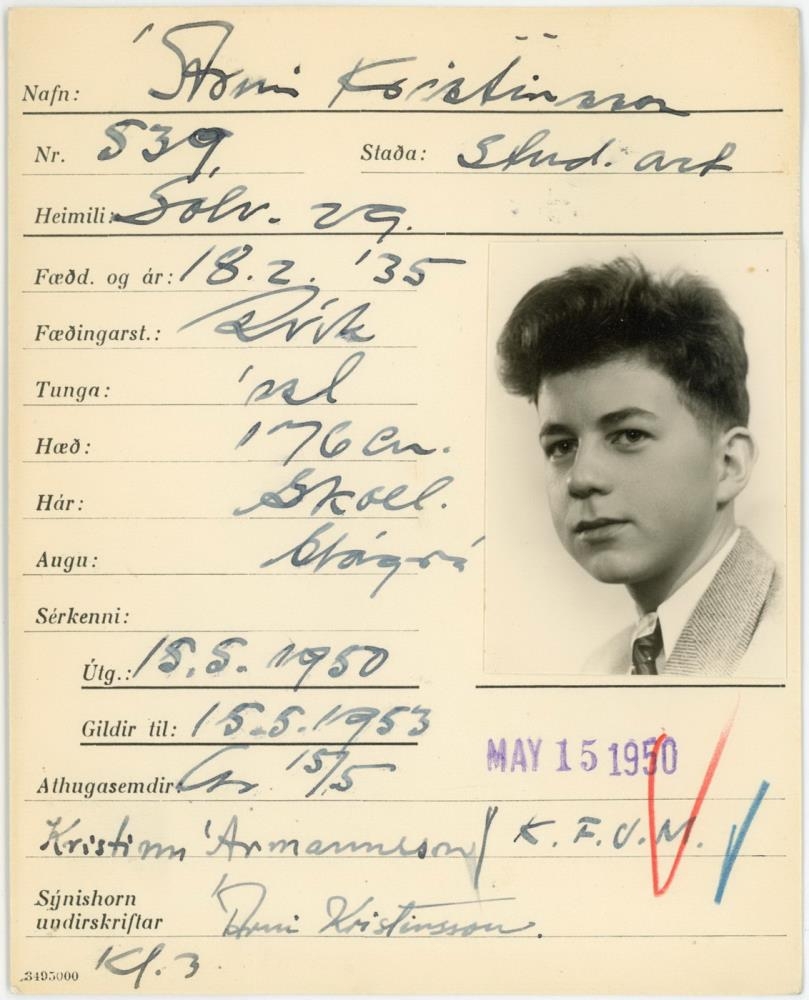 Nafn: Árni Kristinsson
Nr. 539, Staða: Stud. art
Heimili: Sólv. 29.
Fædd. og ár: 18.2. '35
Fæðingarst.: Rvík
Tunga: ísl
Hæð: 176 cm.
Hár: Skoll.
Augu: blágrá
Sérkenni:
Útg.: 15.5. 1950
Gildir til: 15.5.1953
MAY 15 1950
Athugasemdir: 15/5
Kristinn Ármannsson / K.F.U.M.
Sýnishorn
undirskriftar Árni Kristinsson.
3495000 Kl. 3